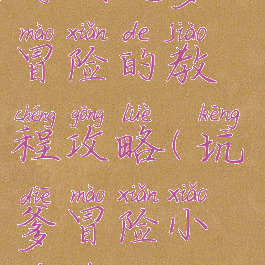 mào xiǎn de jiào
冒险的教
chéng gōng lüè kēng
程攻略(坑
diē mào xiǎn xiǎo
爹冒险小